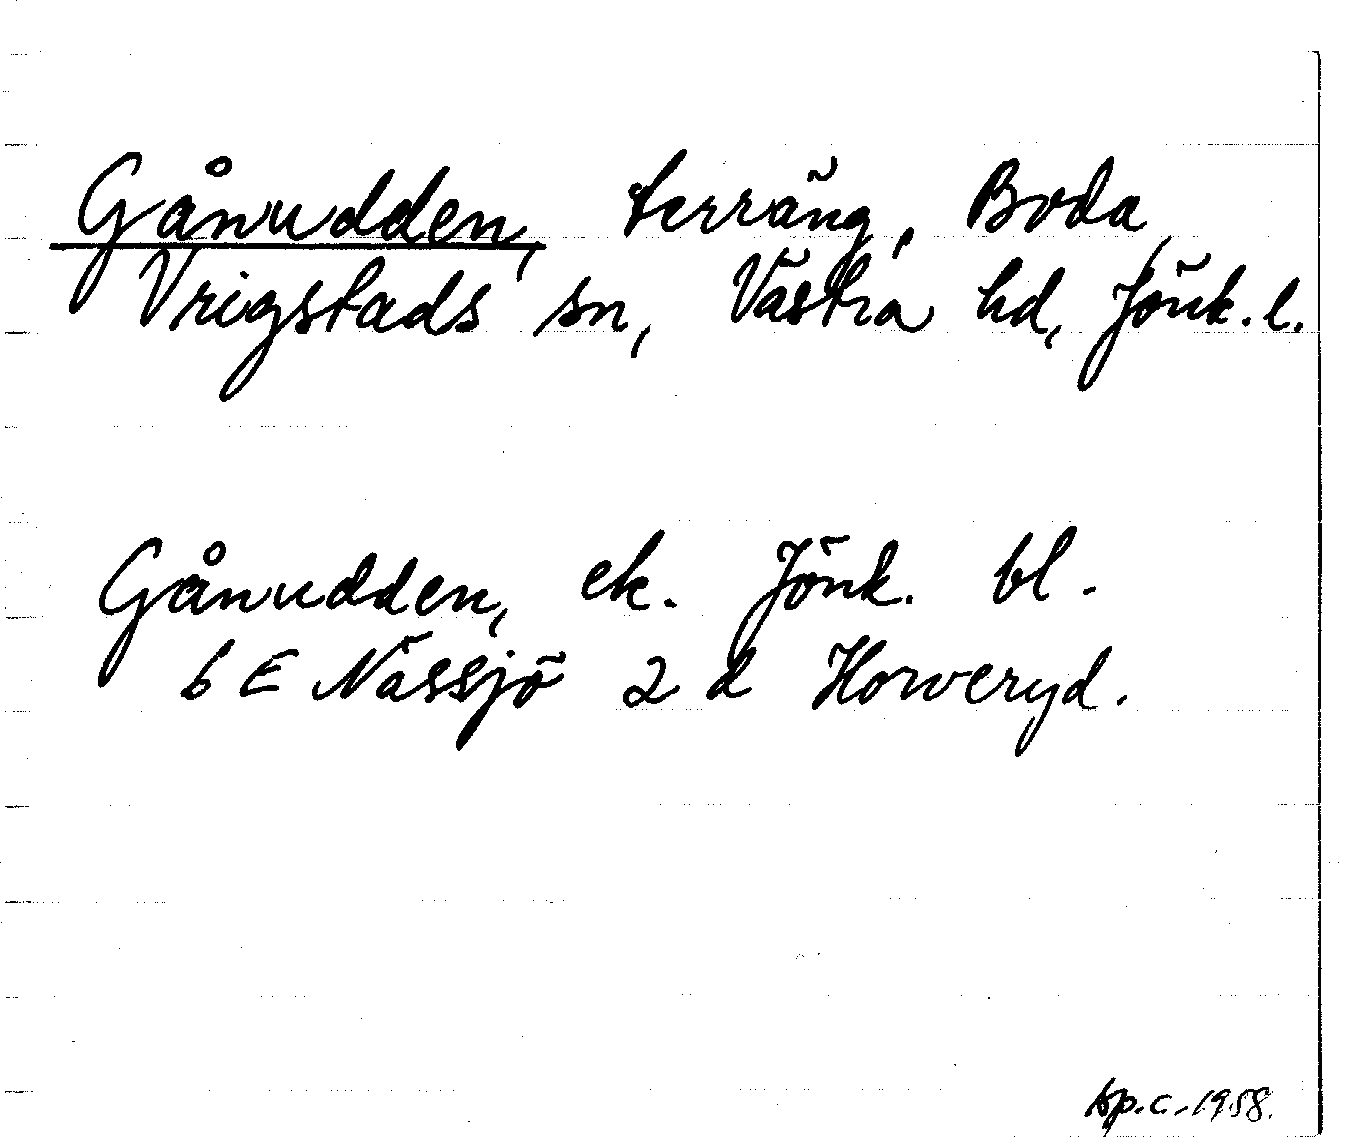 Gånudden, terräng, Boda,
Vrigstads sn, Västra hd, Jönk. l.
Gånudden, ek. Jönk. bl.
6 E Nässjö 2 d Horveryd.
kp.c. 1958.